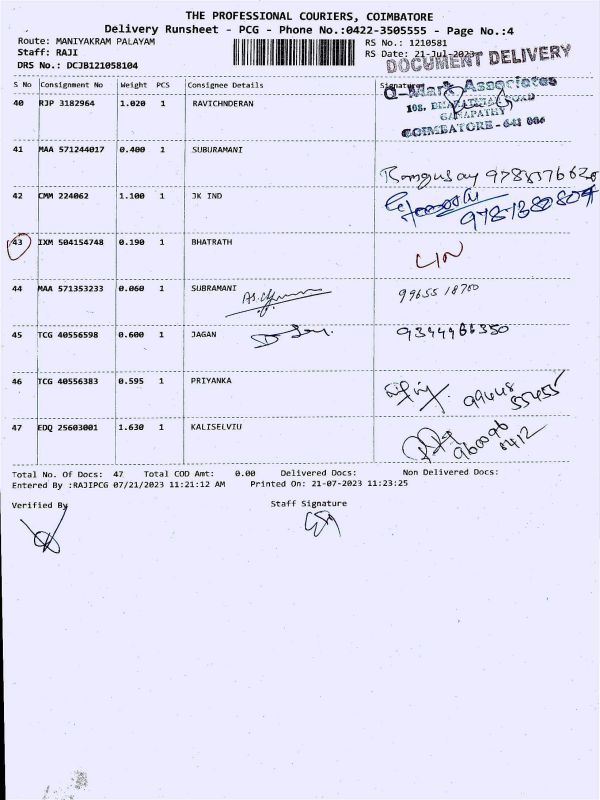 THE PROFESSIONAL COURIERS, COIMBATORE
Delivery Runsheet - PCG - Phone No.:0422-3505555 - Page No.:4
Route: MANIYAKRAM PALAYAM
RS No.: 1210581
Staff: RAJI
RS Date: 21-Jul-2023
DRS No.: DCJB121058104
DOCUMENT DELIVERY
S No Consignment No Weight PCS Consignee Details Signature
Q-Mark Associates
40 RJP 3182964 1.020 1 RAVICHNDERAN
108. ROAD
GANAPATHY
COIMBATORE - 641 006
41 MAA 571244017 0.400 1 SUBURAMANI
42 CMM 224062 1.100 1 JK IND
43 IXM 504154748 0.190 1 BHATRATH
44 MAA 571353233 0.060 1 SUBRAMANI 99655 18700
45 TCG 40556598 0.600 1 JAGAN 9344966350
46 TCG 40556383 0.595 1 PRIYANKA 99448
55455
47 EDQ 25603001 1.630 1 KALISELVIU
Total No. Of Docs: 47 Total COD Amt: 0.00 Delivered Docs: Non Delivered Docs:
Entered By :RAJIPCG 07/21/2023 11:21:12 AM Printed On: 21-07-2023 11:23:25
Verified By Staff Signature